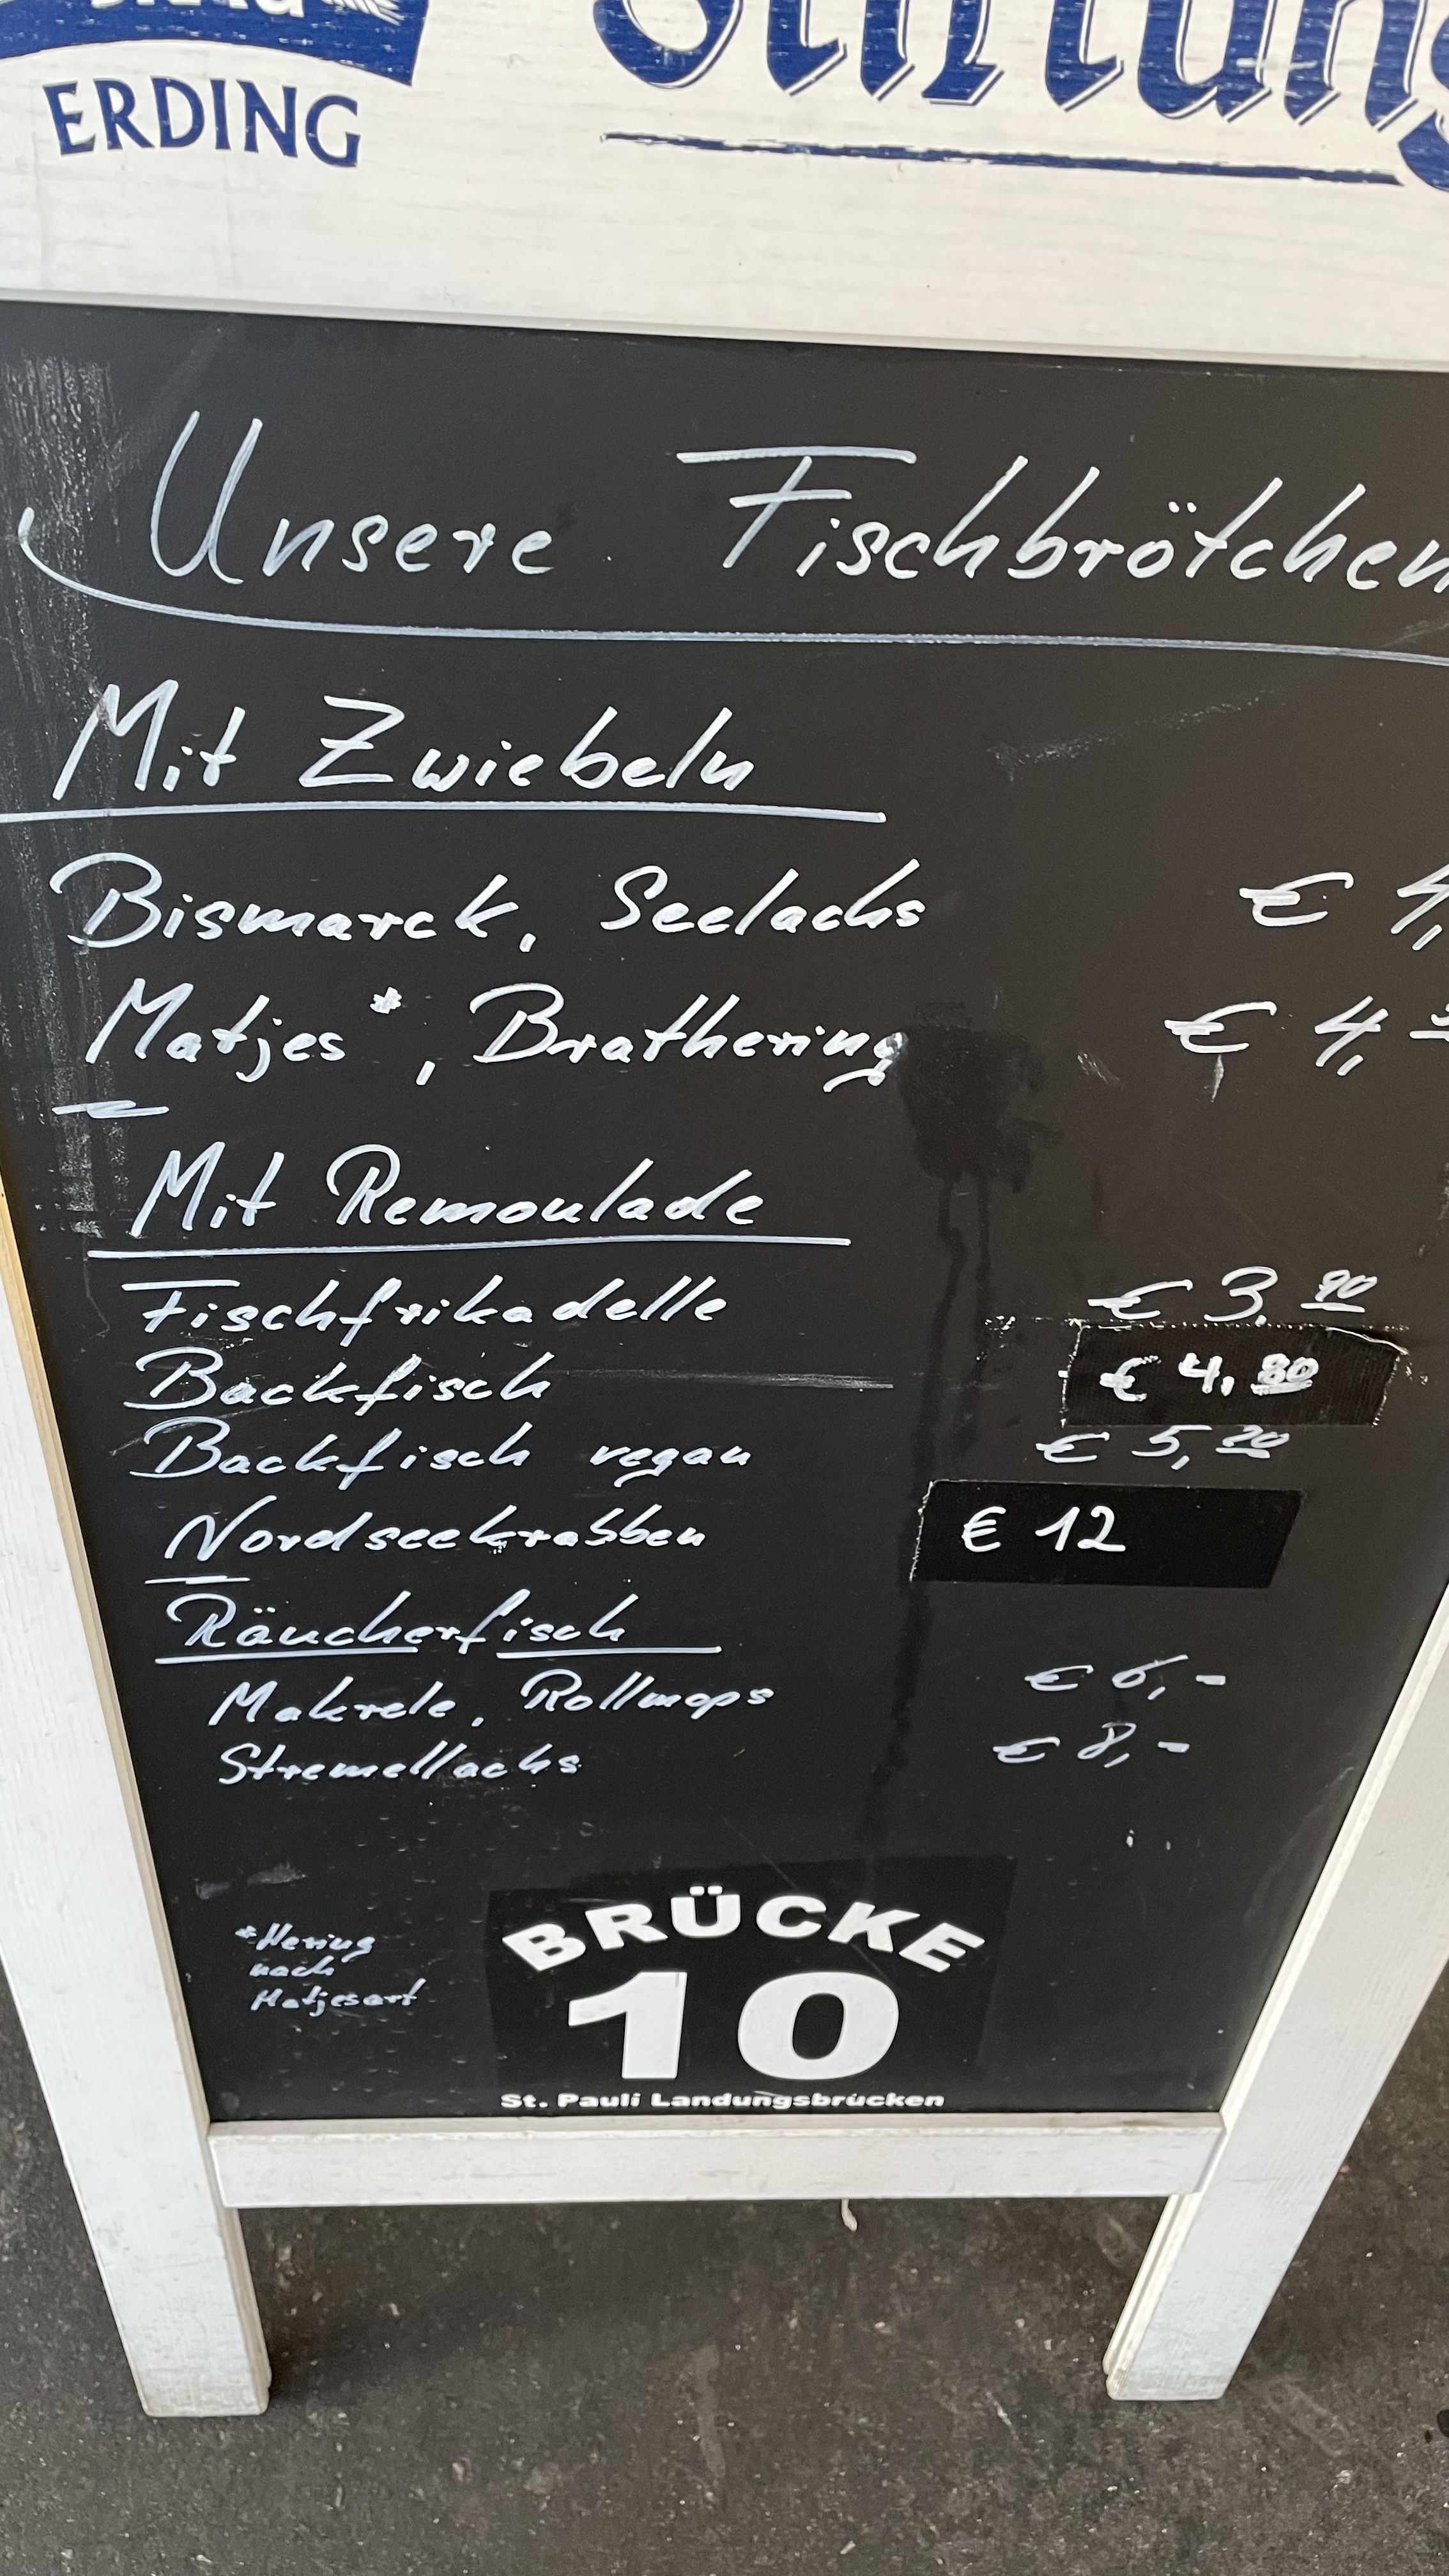 ERDING
Stiftung
Unsere Fischbrötchen
Mit Zwiebeln
Bismarck, Seelachs € 4,
Matjes*, Brathering € 4,
Mit Remoulade
Fischfrikadelle € 3,90
Backfisch € 4,80
Backfisch vegan € 5,20
Nordseekrabben € 12
Räucherfisch
Makrele, Rollmops € 6,-
Stremellachs € 8,-
*Hering
nach
Matjesart
BRÜCKE
10
St. Pauli Landungsbrücken